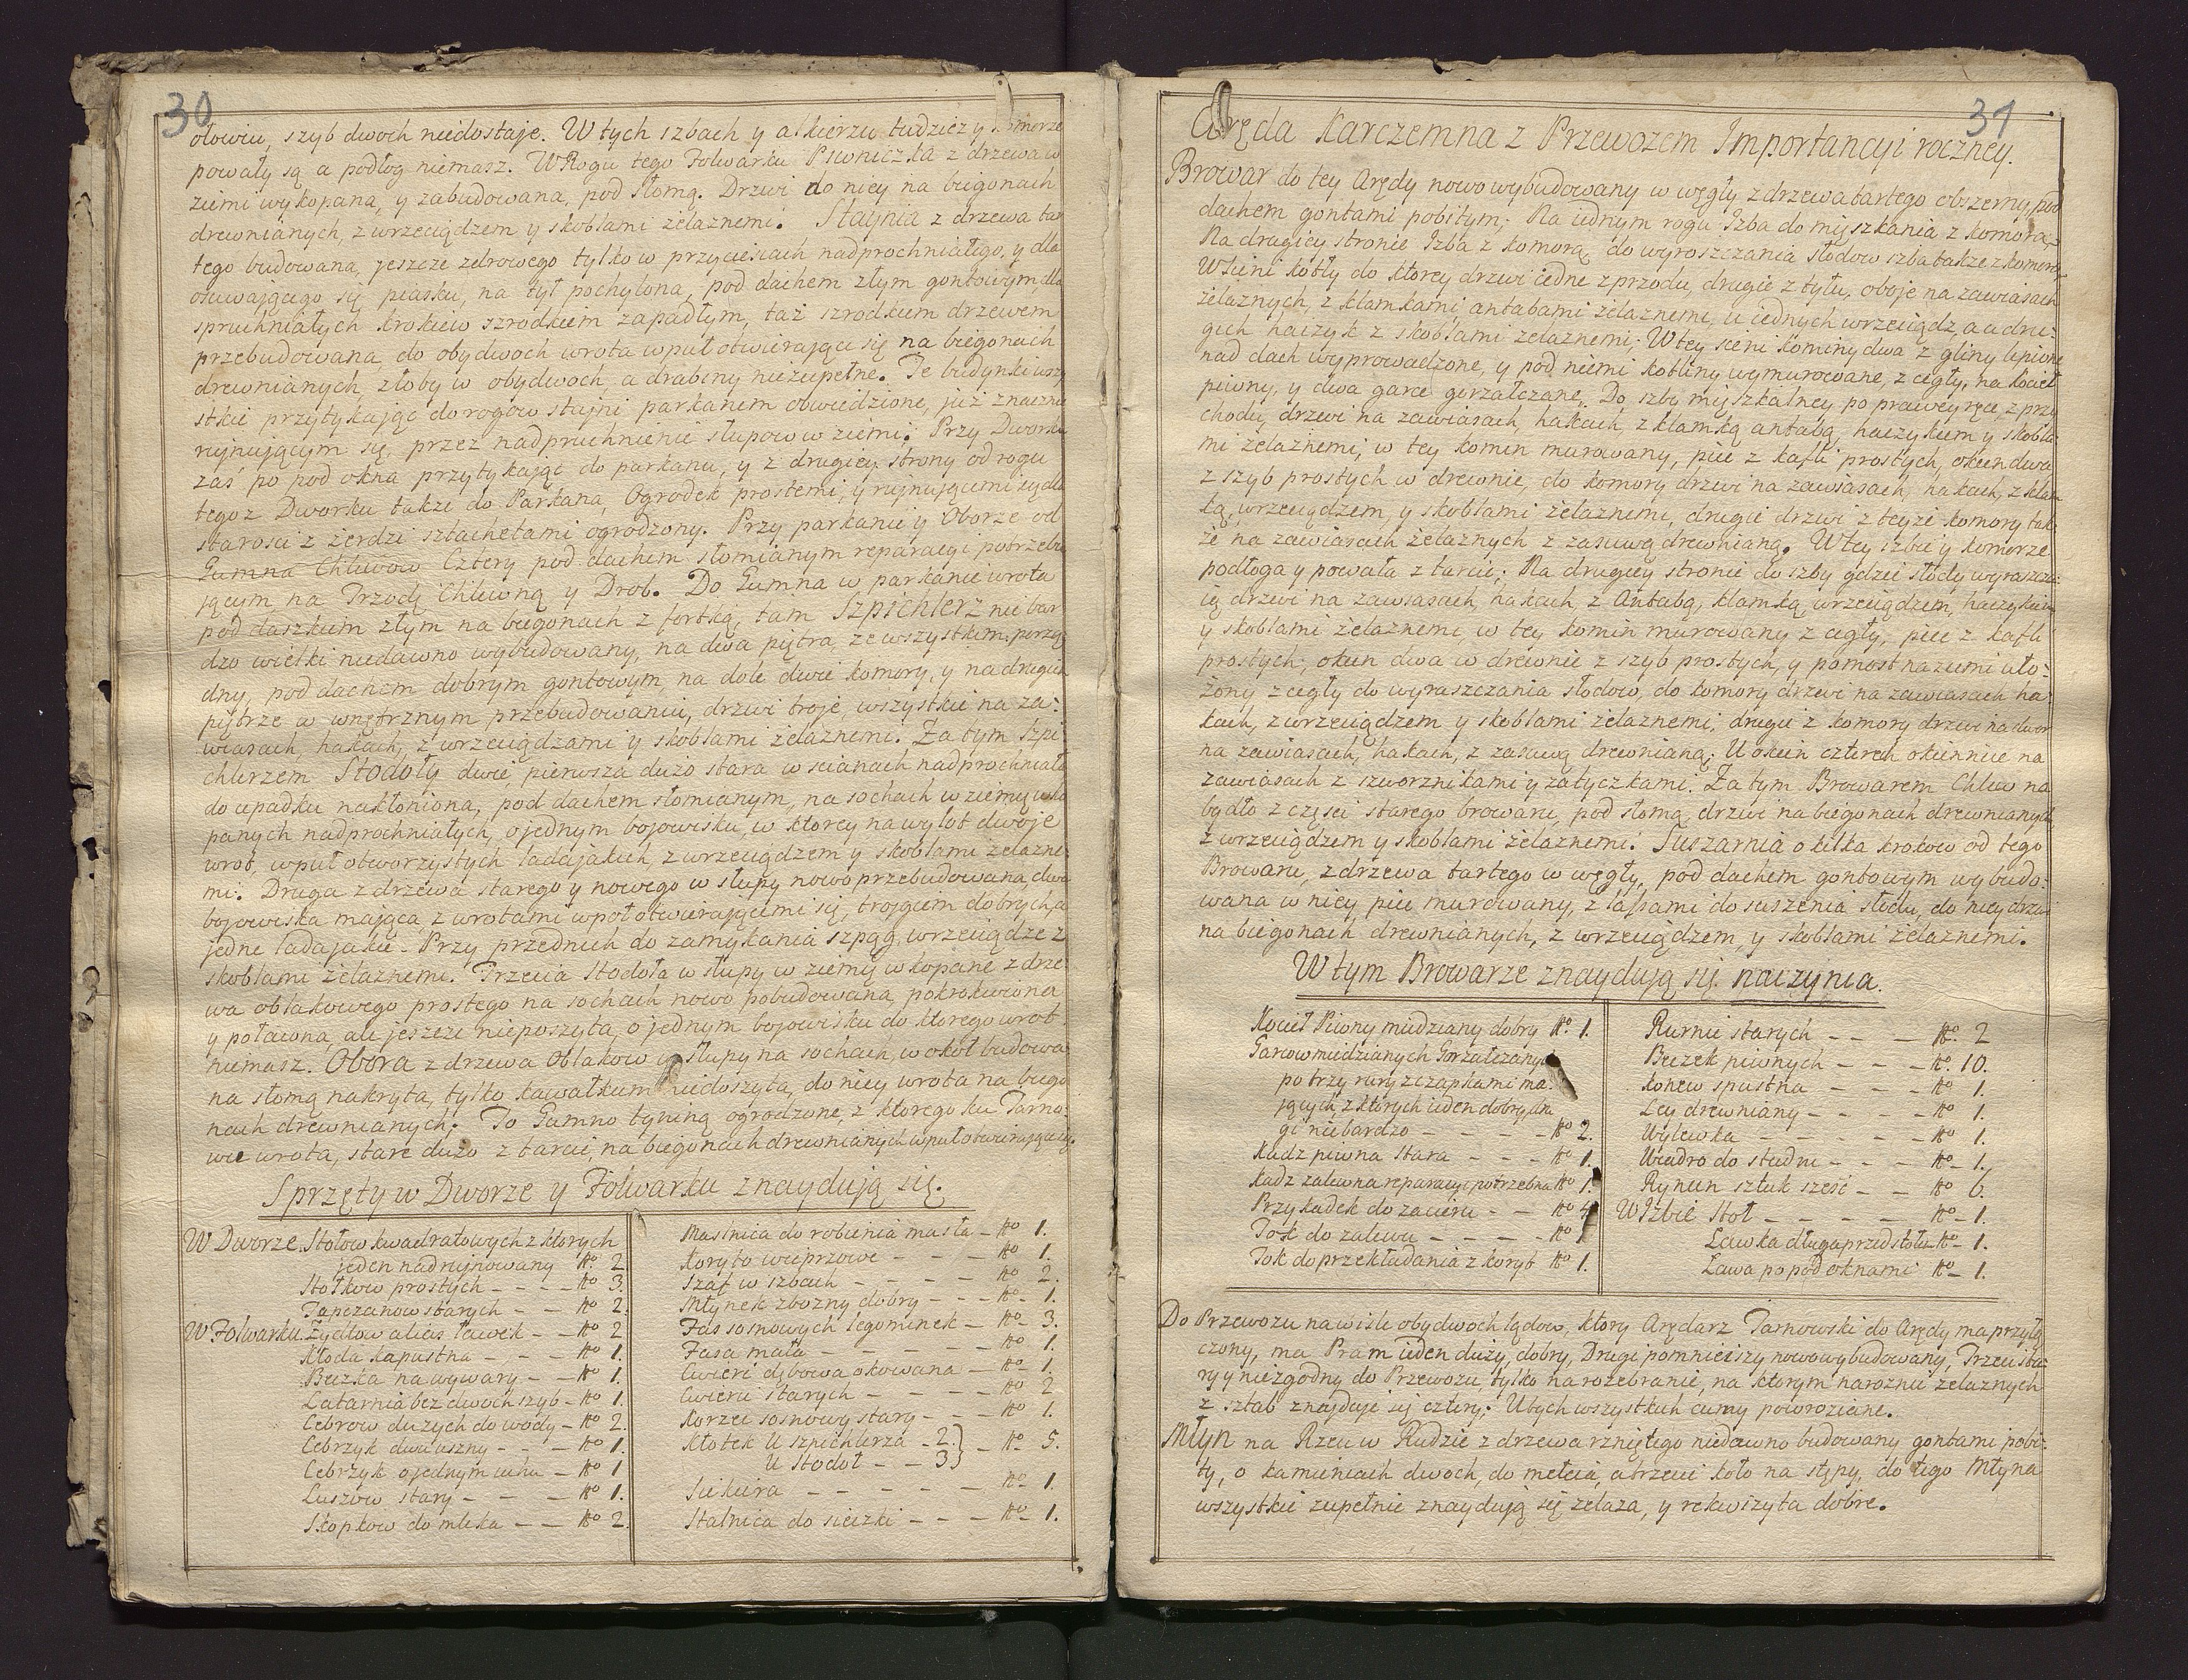 30
ołowiu, szyb dwoch niedostaje. W tych szbach y alkierzu tudziez y komorze
powały są a podłog niemasz. W Rogu tego Folwarku Piwniczka z drzewa w
ziemi wykopana, y zabudowana, pod słomą. Drzwi do niey na biegonach
drewnianych, z wrzeciądzem y skoblami żelaznemi. Staynia z drzewa tar
tego budowana, jeszcze zdrowego tylko w przyciesiach nadprochniałego, y dla
osuwającego się piasku, na tył pochylona, pod dachem złym gontowym dla
spruchniałych krokiew szrodkiem zapadłym, taż szrodkiem drzewem
przebudowana do obydwoch wrota wpuł otwierające się na biegonach
drewnianych, złoby w obydwoch, a drabiny niezupełne. Te budynki wszy
stkie przytykając do rogow stajni parkanem obwiedzione, już znacznie
rujnującym się, przez nadpruchnienie słupow w ziemi. Przy Dworku
zaś po pod okna przytykając do parkanu, y z drugiey strony od rogu
tegoz Dworku także do Parkana, Ogrodek prostemi, y rujnującemi się dla
starosci z żerdzi sztachetami ogrodzony. Przy parkanie y Oborze od
Gumna Chlewow Cztery pod dachem słomianym reparacyi potrzebu
jącym, na Trzodę Chlewną y Drob. Do Gumna w parkanie wrota
pod daszkiem złym na biegonach z fortką, tam Szpichlerz nie bar
dzo wielki niedawno wybudowany, na dwa piętra, ze wszystkim porzą
dny, pod dachem dobrym gontowym, na dole dwie komory, y na drugim
piętrze w wnętrznym przebudowaniu, drzwi troje, wszystkie na za:
wiasach, hakach, z wrzeciądzami y skoblami żelaznemi. Za tym Szpi
chlerzem Stodoły dwie pierwsza dużo stara w scianach nadprochniała
do upadku nakłoniona, pod dachem słomianym, na sochach w ziemię wko
panych nadprochniałych, o jednym bojowisku, w ktorey na wylot dwoje
wrot, wpuł otworzystych ladajakich z wrzeciądzem y skoblami zelazne:
mi. Druga z drzewa starego y nowego w słupy nowo przebudowana, dwa
bojowiska mająca z wrotami wpoł otwierającemi się, trojgiem dobrych, a
jedne ladajakie. Przy przednich do zamykania szpąg, wrzeciądze z
skoblami żelaznemi. Trzecia Stodoła w słupy w ziemię wkopane z drze
wa oblakowego prostego na sochach nowo pobudowana, pokrokwiona
y połacona, ale jeszcze nieposzyta, o jednym bojowisku do ktorego wrot
niemasz. Obora z drzewa oblakow w słupy na sochach, w okoł budowa
na słomą nakryta, tylko kawałkiem niedoszyta, do niey wrota na biego
nach drewnianych. To Gumno tyniną ogrodzone, z ktorego ku Tarno:
wie wrota, stare dużo z tarcic, na biegonach drewnianych wpuł otwierające się.
Sprzęty w Dworze y Folwarku znaydują się.
W Dworze. Stołow kwadratowych z ktorych
jeden nadrujnowany No. 2
Stołkow prostych - - - No 3.
Tapczanow starych - - No 2.
W Folwarku. Zydłow alias ławek - - No 2
Kłoda kapustna - - - No 1.
Beczka na wywary - - No 1.
Latarnia bez dwoch szyb - No 1.
Cebrow dużych do wody - No 2.
Cebrzyk dwuuszny - - - No 1.
Cebrzyk o jednym uchu - No 1
Luszow stary - - - No 1.
Skopkow do mleka - - No 2.
Maslnica do robienia masła - No 1.
Koryto wieprzowe - - - No 1.
Szaf w szbach - - - - No 2.
Młynek zbozny dobry - - - No 1.
Fas sosnowych legominek - No 3.
Fasa mała - - - - - No 1.
Cwierc dębowa okowana - No 1.
Cwierci starych - - - - No 2
Korzec sosnowy stary - - - No 1.
Kłotek U szpichlerza - 2.} - No 5.
U Stodoł - - 3}
Siekiera - - - - - No 1.
Stalnica do sieczki - - - No 1.
31
Aręda Karczemna z Przewozem Importancyi roczney.
Browar do tey Arędy nowo wybudowany w węgły z drzewa tartego obszerny, pod
dachem gontami pobitym; Na iednym rogu Izba do mięszkania z komorą,
Na drugiey stronie Izba z komorą, do wyroszczania słodow izba takze z komorą
W sieni kotły do ktorey drzwi iedne z przodu, drugie z tyłu, oboje na zawiasach
żelaznych, z klamkami, antabami żelaznemi, u iednych wrzeciądz, a u dru:
gich haczyk z skoblami zelaznemi; W tey sieni kominy dwa z gliny lepione
nad dach wyprowadzone, y pod niemi kotliny wymurowane, z cegły, na kocieł
piwny, y dwa garce gorzałczane. Do szby mięszkalney po prawey ręce, z przy
chodu, drzwi na zawiasach, hakach, z klamką antabą, haczykiem y skobla
mi żelaznemi, w tey komin murowany, piec z kafli prostych, okien dwa
z szyb prostych w drewnie, do komory drzwi na zawiasach, hakach, z klam
ką, wrzeciądzem, y skoblami żelaznemi, drugie drzwi z teyże komory tak
że na zawiasach żelaznych z zasuwą drewnianą. W tey izbie y komorze
podłoga y powała z tarcic; Na drugiey stronie do szby gdzie słody wyraszcza
ią drzwi na zawiasach, hakach, z Antabą, klamką, wrzeciądzem, haczykiem
y skoblami żelaznemi, w tey komin murowany z cegły, piec z kafli
prostych, okien dwa w drewnie z szyb prostych, y pomost na ziemi uło:
żony z cegły do wyraszczania słodow, do komory drzwi na zawiasach ha
kach, z wrzeciądzem y skoblami żelaznemi, drugie z komory drzwi na dwor
na zawiasach, hakach, z zasuwą drewnianą; U okien czterech okiennice na
zawiasach z szworznikami y zatyczkami. Za tym Browarem Chlew na
bydło z częsci starego browaru, pod słomą, drzwi na biegonach drewnianych
z wrzeciądzem y skoblami żelaznemi. Suszarnia o kilka krokow od tego
Browaru, z drzewa tartego w węgły, pod dachem gontowym wybudo:
wana w niey piec murowany, z lassami do suszenia słodu, do niey drzwi
na biegonach drewnianych, z wrzeciądzem, y skoblami żelaznemi.
W tym Browarze znaydują się naczynia.
Kocieł Piwny miedziany dobry No. 1.
Garcow miedzianych Gorzałczanych
po trzy rury z czapkami ma:
jących, z ktorych ieden dobry, dru
gi niebardzo - - - - No 2.
Kadz piwna stara - - - No 1.
Kadz zalewna reparacyi potrzebna No 1.
Przykadek do zacieru - - No 4
Tok do zalewu - - - - No 1
Tok do przekładania z koryt No 1.
Rurnic starych - - - No. 2
Beczek piwnych - - - No. 10.
Konew spustna - - - No 1.
Ley drewniany - - - - No 1.
Wylewka - - - - - No 1.
Wiadro do studni - - - No 1.
Rynien sztuk sześć - - No 6.
W Izbie Stoł - - - - - No 1.
Ławka długa przed stołem No 1.
Ława popod oknami No 1.
Do Przewozu na wiśle obydwoch lądow, ktory Arędarz Tarnowski do Arędy ma przyłą
czony, ma Pram ieden duży, dobry, Drugi pomnieiszy nowo wybudowany, Trzeci sta:
ry y niezgodny do Przewozu, tylko na rozebranie, na ktorym naroznic żelaznych
z sztab znayduje się cztery; U tych wszystkich cumy powroziane.
Młyn na Rzece w Rudzie z drzewa rzniętego niedawno budowany gontami pobi:
ty, o kamieniach dwoch, do mełcia, a trzecie koło na stępy, do tego Młyna
wszystkie zupełnie znaydują się żelaza, y rekwizyta dobre.